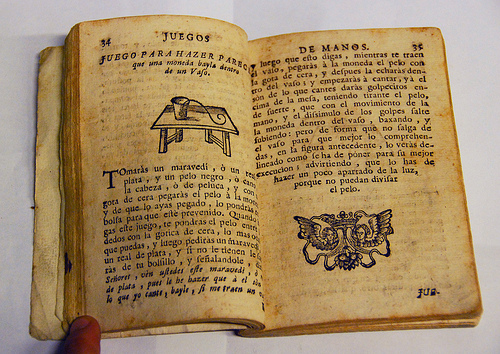 34
JUEGOS
JUEGO PARA HAZER PAREC
que una moneda bayla dentro
de un Vaso.
TOmaràs un maravedi, ò un
plata, y un pelo negro, ò
la cabeza, ò de peluca, y con
gota de cera pegaràs el pelo à la
y de que lo ayas pegado, lo pondràs
bolsa para que estè prevenido. Quando
gas este juego, te pondras el pelo entre
dedos con la gotica de cera, lo mas
que puedas, y luego pediràs un maravedi
un real de plata, y si no le tienen
ràs de tu bolsillo, y señalandole,
Señores, vèn ustedes este maravedi, ò
de plata, pues le he hazer que à el
lo que yo cante, bayle, si me traen un
DE MANOS.
35
luego que esto digas, mientras te traen
el vaso, pegaràs à la moneda el pelo con
la gota de cera, y despues la echaràs den-
tro del vaso: y empezaràs à cantar, ya el
son de lo que cantes daràs golpecitos en-
cima de la mesa, teniendo tirante el pelo,
de suerte, que con el movimiento de la
mano, y el dissimulo de los golpes salte
la moneda dentro del vaso, baxando, y
subiendo: pero de forma que no salga de
el vaso para que mejor lo comprehen-
das, en la figura antecedente, lo veràs de-
lineado como se ha de poner para su mejor
execucion: advirtiendo, que lo has de
hazer un poco apartado de la luz,
porque no puedan divisar
el pelo.
JUE-